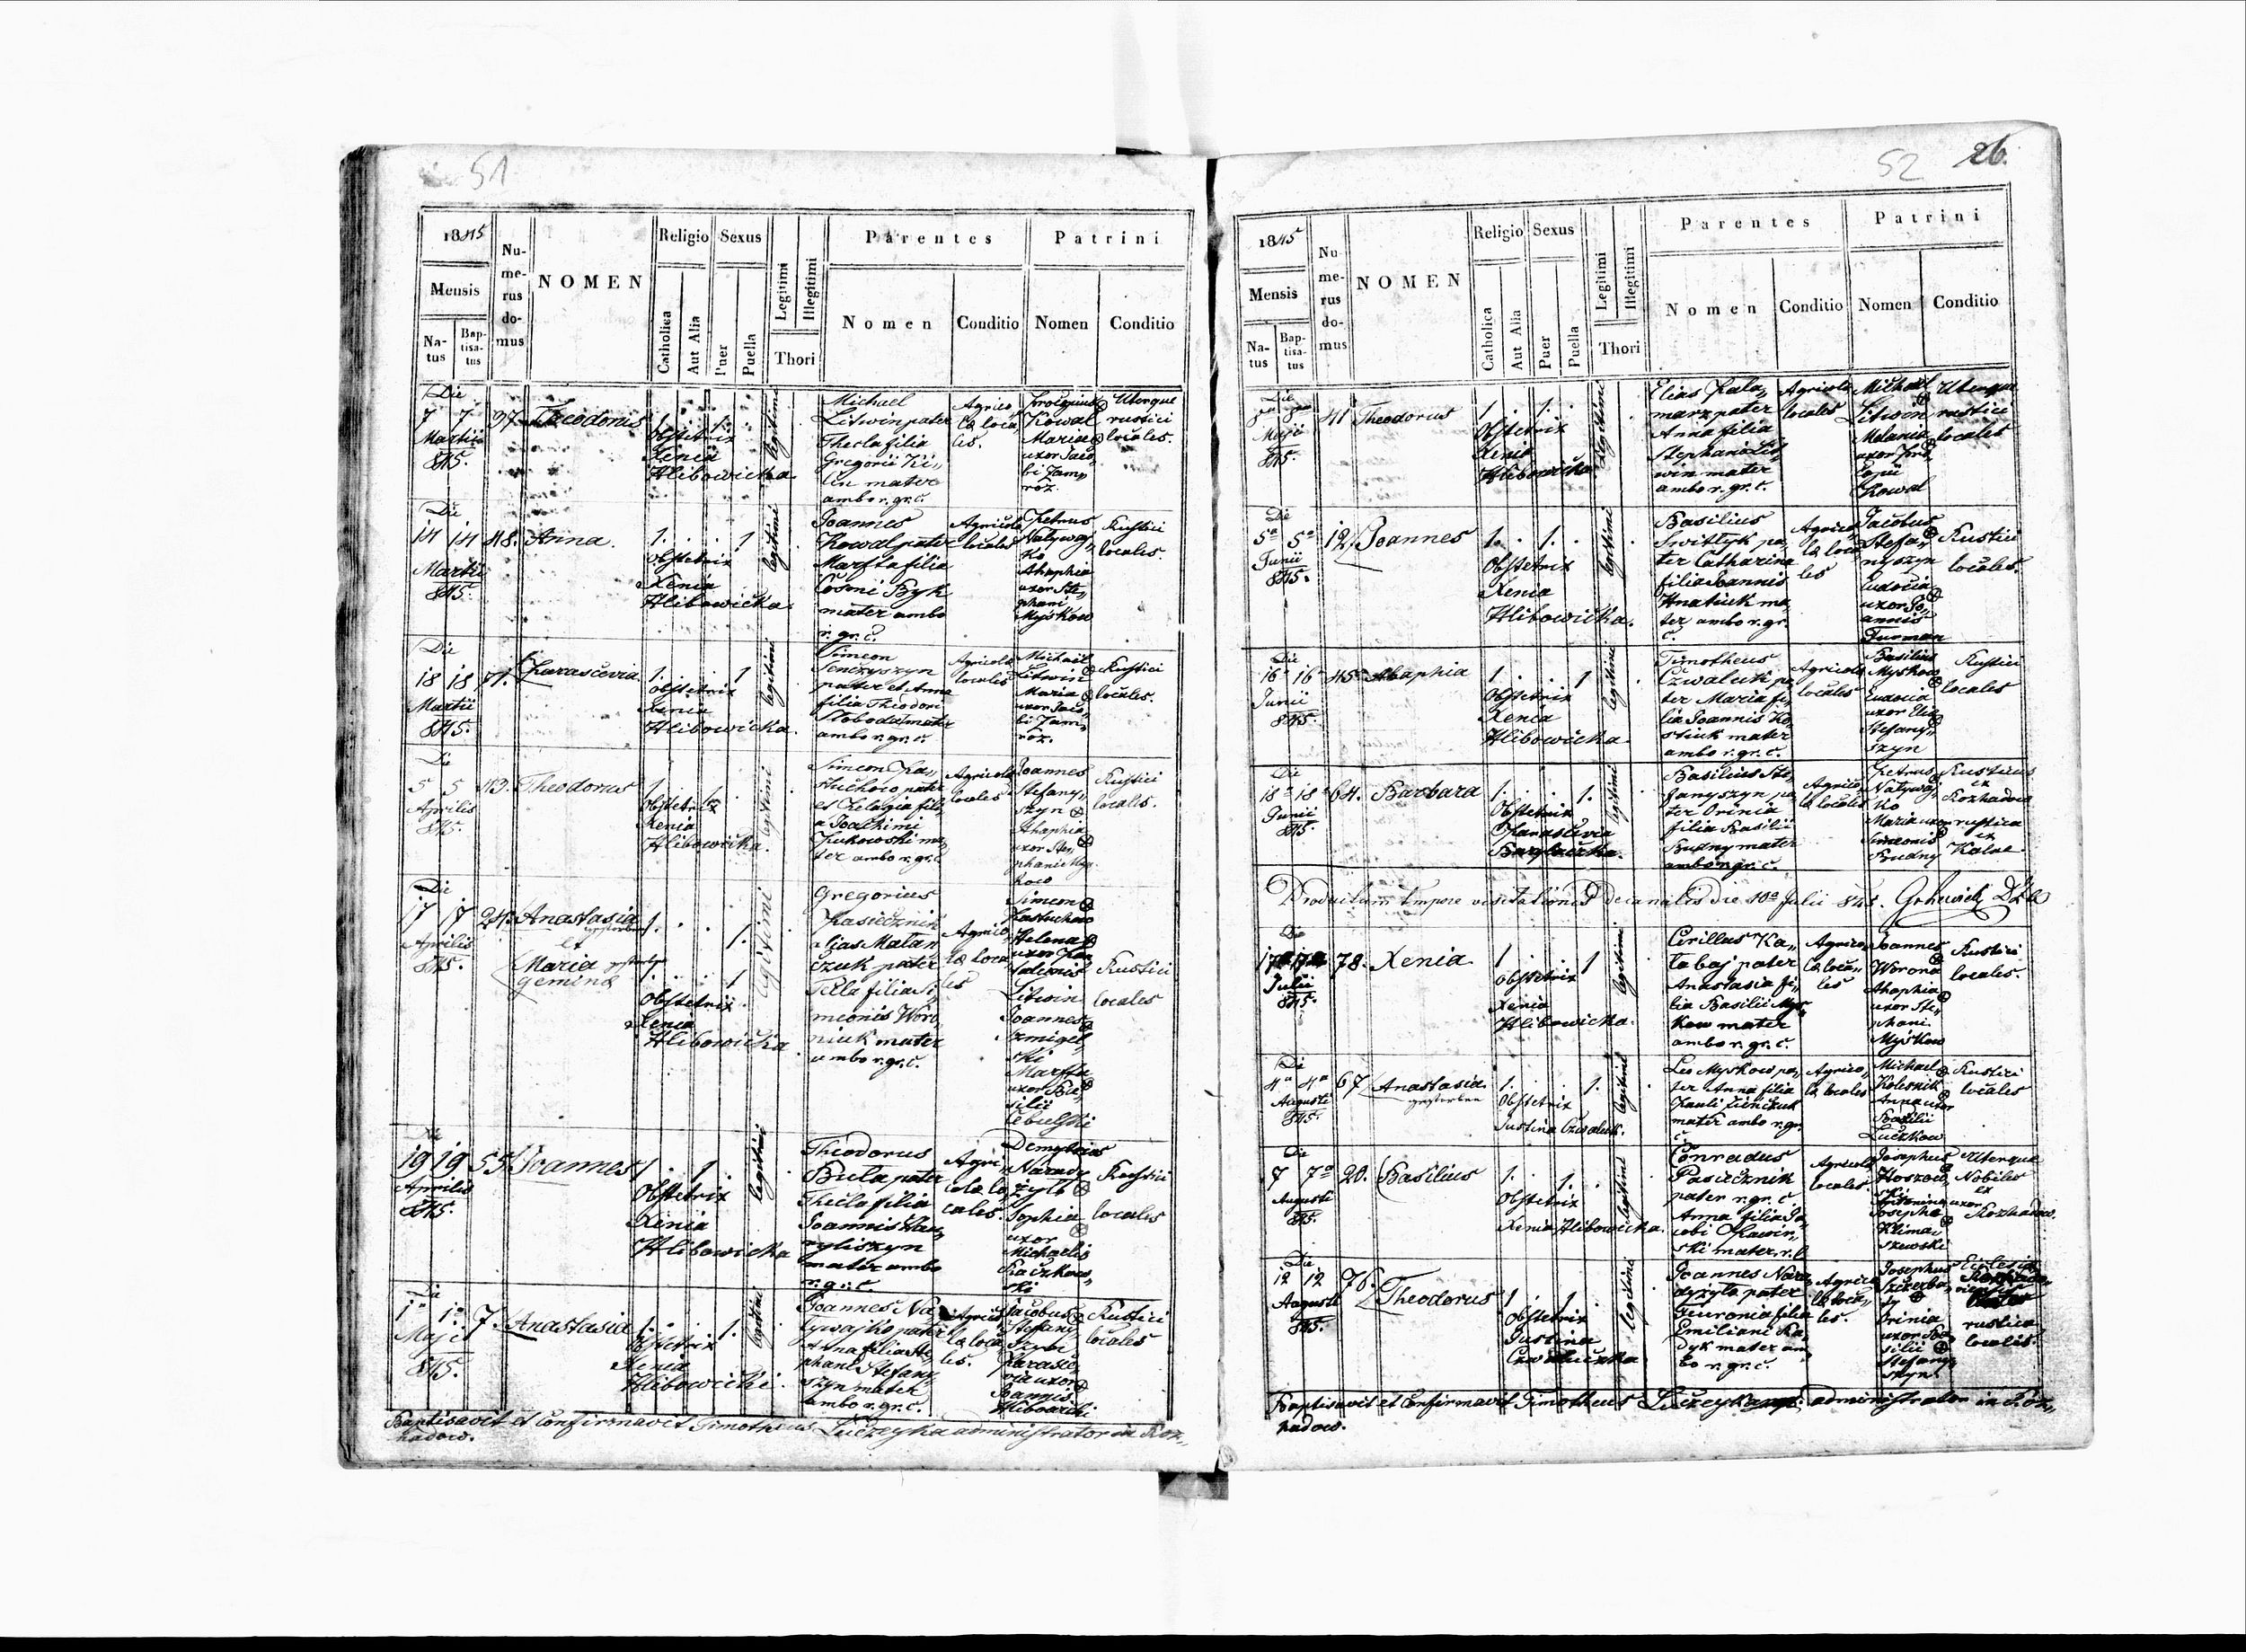 51
1845
Mensis
Na-
tus
Bap-
tisa-
tus
Nu-
me-
rus
do-
mus
NOMEN
Religio
Catholica
Aut Alia
Sexus
Puer
Puella
Legitimi
Illegitimi
Thori
Parentes
Nomen
Conditio
Patrini
Nomen
Conditio
Die
7 7
Martii
845.
97
Theodorus
1. 1.
Obstetrix
Xenia
Hlibowicka
legitimi
Michael
Litwin pater
Thecla filia
Gregorii
mater
ambo r. gr. c.
Agrico„
la loca„
les.
Kowal
Maria
uxor Jaco„
bi Jam„
roz
Uterque
rustici
locales.
Die
14 14
Martii
845.
48.
Anna
1. 1
Obstetrix
Xenia
Hlibowicka.
legitimi
Joannes
Kowal pater
Martta filia
Cosmi Byk
mater ambo
r. gr. c.
Agricola
locales
Petrus
Natyway„
ko
Ahaphia
uxor Ste„
phani
Myskow
Rustici
locales.
Die
18 18
Martii
845.
71.
Parascevia
1. 1
Obstetrix
Xenia
Hlibowicka.
legitimi
Simeon
Senczyszyn
pater et Anna
filia Theodori
Sloboda mater
ambo r. gr. c.
Agricola
locales
Michael
Litwin
Maria
uxor Jaco„
bi Jam„
roz.
Rustici
locales.
Die
5 5
Aprilis
845.
Theodorus
1. 1.
Obstetrix
Xenia
Hlibowicka.
legitimi
Simeon Pa„
stuchow pater
et Pelagia fili„
a Joachimi
Zukowski ma„
ter ambo r. gr. c.
Agricola
locales
Joannes
Stefany„
szyn
Ahaphia
uxor Ste„
phani Mys„
kow
Rustici
locales.
Die
17 17
Aprilis
845.
24.
Anastasia
gestorben
et
Maria gestorben
Gemina
1. 1.
1. 1
Obstetrix
Xenia
Hlibowicka
legitimi
Gregorius
Pasiecznik
alias Matan
czuk pater
Tekla filia Si„
meonis Woro„
niuk mater
ambo r. gr. c.
Agrico„
la loca„
les
Simeon
Pastuchow
Helena
uxor Pan„
talemis
Litwin
Joannes
Szmigel„
ski
Martta
uxor Ba„
silii
Cebulski
Rustici
locales
Die
19 19
Aprilis
845.
55
Joannes
1. 1
Obstetrix
Xenia
Hlibowicka
legitimi
Theodorus
Buta pater
Thecla filia
Joannis Haw„
ryliszyn
mater ambo
r. gr. c.
Agri„
cola lo„
cales.
Demytrius
Narody„
zyto
Sophia
uxor
Michaelis
Raczkow„
ski
Rustici
locales
Die
1a 1a
Maji
845.
7.
Anastasia
1. 1.
Obstetrix
Xenia
Hlibowicki.
legitimi
Joannes Na„
tywajko pater
Anna filia Ste„
phani Stefany„
szyn mater
ambo r. gr. c.
Agrico„
la loca„
les.
Jacobus
Stefany„
szyn
Parasce„
via uxor
Joannis
Hlibowicki
Rustici
locales
Baptisavit et Confirmavit Timotheus Luczeyka administrator in Roz„
hadow.
52 26.
1845
Mensis
Na-
tus
Bap-
tisa-
tus
Nu-
me-
rus
do-
mus
NOMEN
Religio
Catholica
Aut Alia
Sexus
Puer
Puella
Legitimi
Illegitimi
Thori
Parentes
Nomen
Conditio
Patrini
Nomen
Conditio
Die
8a
Maji
845.
41
Theodorus
1. 1.
Obstetrix
Xenia
Hlibowicka
legitimi
Elias Pala„
marz pater
Anna filia
Stephani Lit„
win mater
ambo r. gr. c.
Agricola
locales
Michael
Litwin
Melania
uxor Pro„
copii
Kowal
Uterque
rustici
locales
Die
5a 5a
Junii
845.
12.
Joannes
1. 1.
Obstetrix
Xenia
Hlibowicka.
legitimi
Basilius
Switlyk pa„
ter Catharina
filia Joannis
Hnatiuk ma„
ter ambo r. gr.
c.
Agrico„
la loca
les
Jacobus
Stefa„
nyszyn
Eudocia
uxor Jo„
annis
Furman
Rustici
locales.
Die
16a 16a
Junii
845.
45
Ahaphia
1. 1
Obstetrix
Xenia
Hlibowicka.
legitimi
Timotheus
Czwaluk pa„
ter Maria fi„
lia Joannis Ko„
stiuk mater
ambo r. gr. c.
Agricola
locales
Basilius
Myskow
Eudocia
uxor Elia
Stefany„
szyn
Rustici
locales
Die
18a 18a
Junii
845.
64.
Barbara
1. 1.
Obstetrix
Parascevia
legitimi
Basilius Ste„
fanyszyn pa„
ter Orinia
filia Basilii
Budny mater
ambo r. gr. c.
Agrico„
la locales
Petrus
Natyway„
ko
Maria uxor
Simeonis
Budny
Rusticus
ex
Rozhadow
rustica
ex
Kalne
Productum tempore visitationis Decanalis die 10a Julii 845.
Die
17a 17a
Julii
845.
78.
Xenia
1. 1
Obstetrix
Xenia
Hlibowicka.
legitimi
Cirillus Ka„
tabaj pater
Anastasia fi„
lia Basilii Mys„
kow mater
ambo r. gr. c.
Agrico„
la loca„
les
Joannes
Worona
Ahaphia
uxor Ste„
phani
Myskow
Rustici
locales.
Die
4a 4a
Augusti
845.
67
Anastasia
gestorben
1. 1.
Obstetrix
Justina Czwaluk.
legitimi
Leo Myskow pa„
ter Anna filia
Pauli
mater ambo r. gr.
c.
Agrico„
la locales
Michael
Kolesnik
Anna uxor
Basilii
Luczkow
Rustici
locales
Die
7 7a
Augusti
845.
20.
Basilius
1. 1.
Obstetrix
Xenia Hlibowicka.
legitimi
Conradus
Pasiecznik
pater r. gr. c
Anna filia Ja„
cobi
mater r. l.
Agricola
locales.
Josephus
Hoszow„
ski
Antonina uxor
Josephi
Klima„
szewski
Uterque
Nobiles
ex
Rozhadow.
Die
12 12
Augusti
845.
76.
Theodorus
1. 1.
Obstetrix
Justina
Czwaluczka
legitimi
Joannes Naro„
dyzyto pater
Feuronia filia
Emiliani Ra„
dyk mater am„
bo r. gr. c.
Agrico„
la loca„
les.
Josephus
Szczerba„
ty
Orinia
uxor Ba„
silii
Stefany„
szyn
rustica
locales.
Baptisavit et Confirmavit Timotheus Luczeyka administrator in Roz„
hadow.